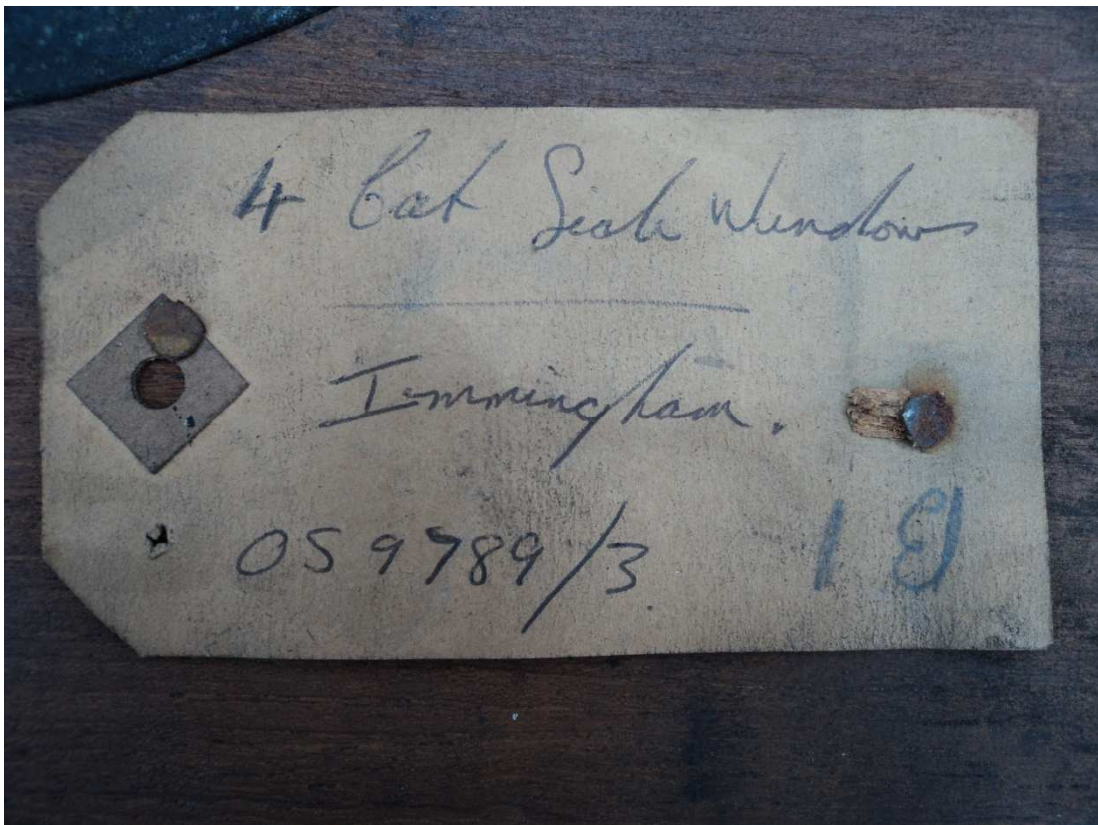 4 Cab Side Windows
Immingham.
OS 9789/3